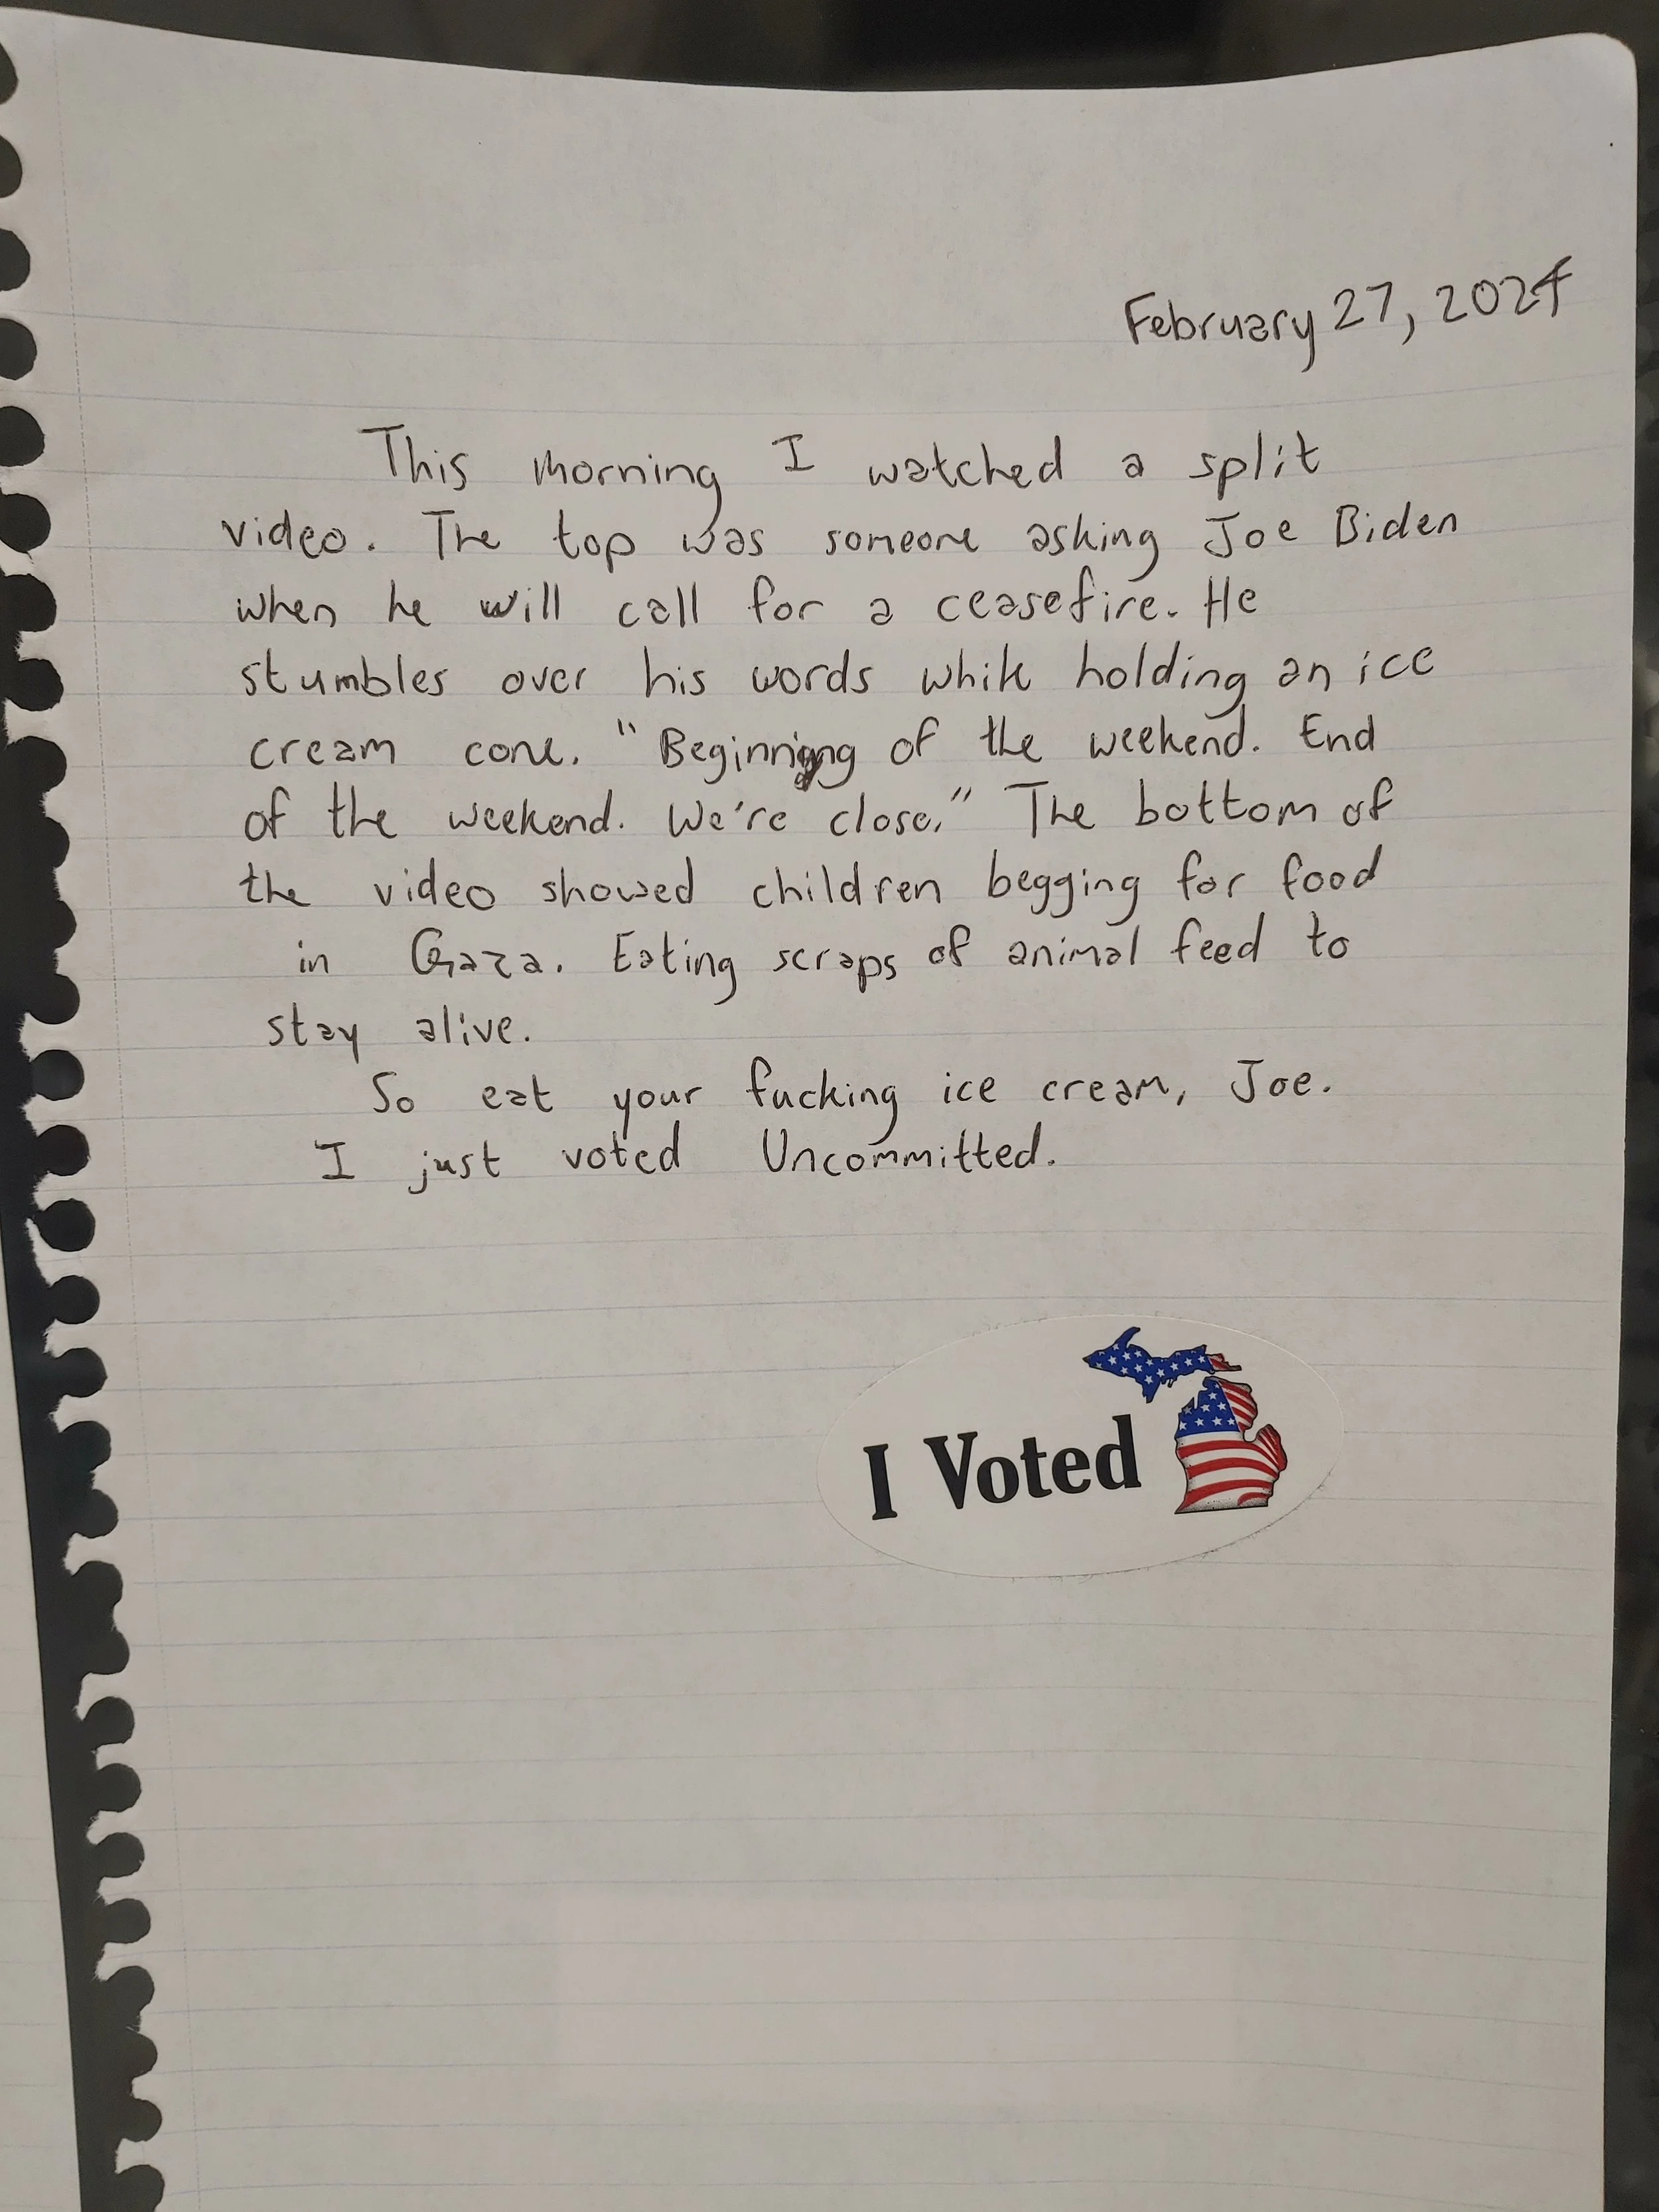 February 27, 2024
This morning I watched a split
video. The top was someone asking Joe Biden
when he will call for a ceasefire. He
stumbles over his words while holding an ice
cream cone. "Beginning of the weekend. End
of the weekend. We're close." The bottom of
the video showed children begging for food
in Gaza. Eating scraps of animal feed to
stay alive.
So eat your fucking ice cream, Joe.
I just voted Uncommitted.
I Voted